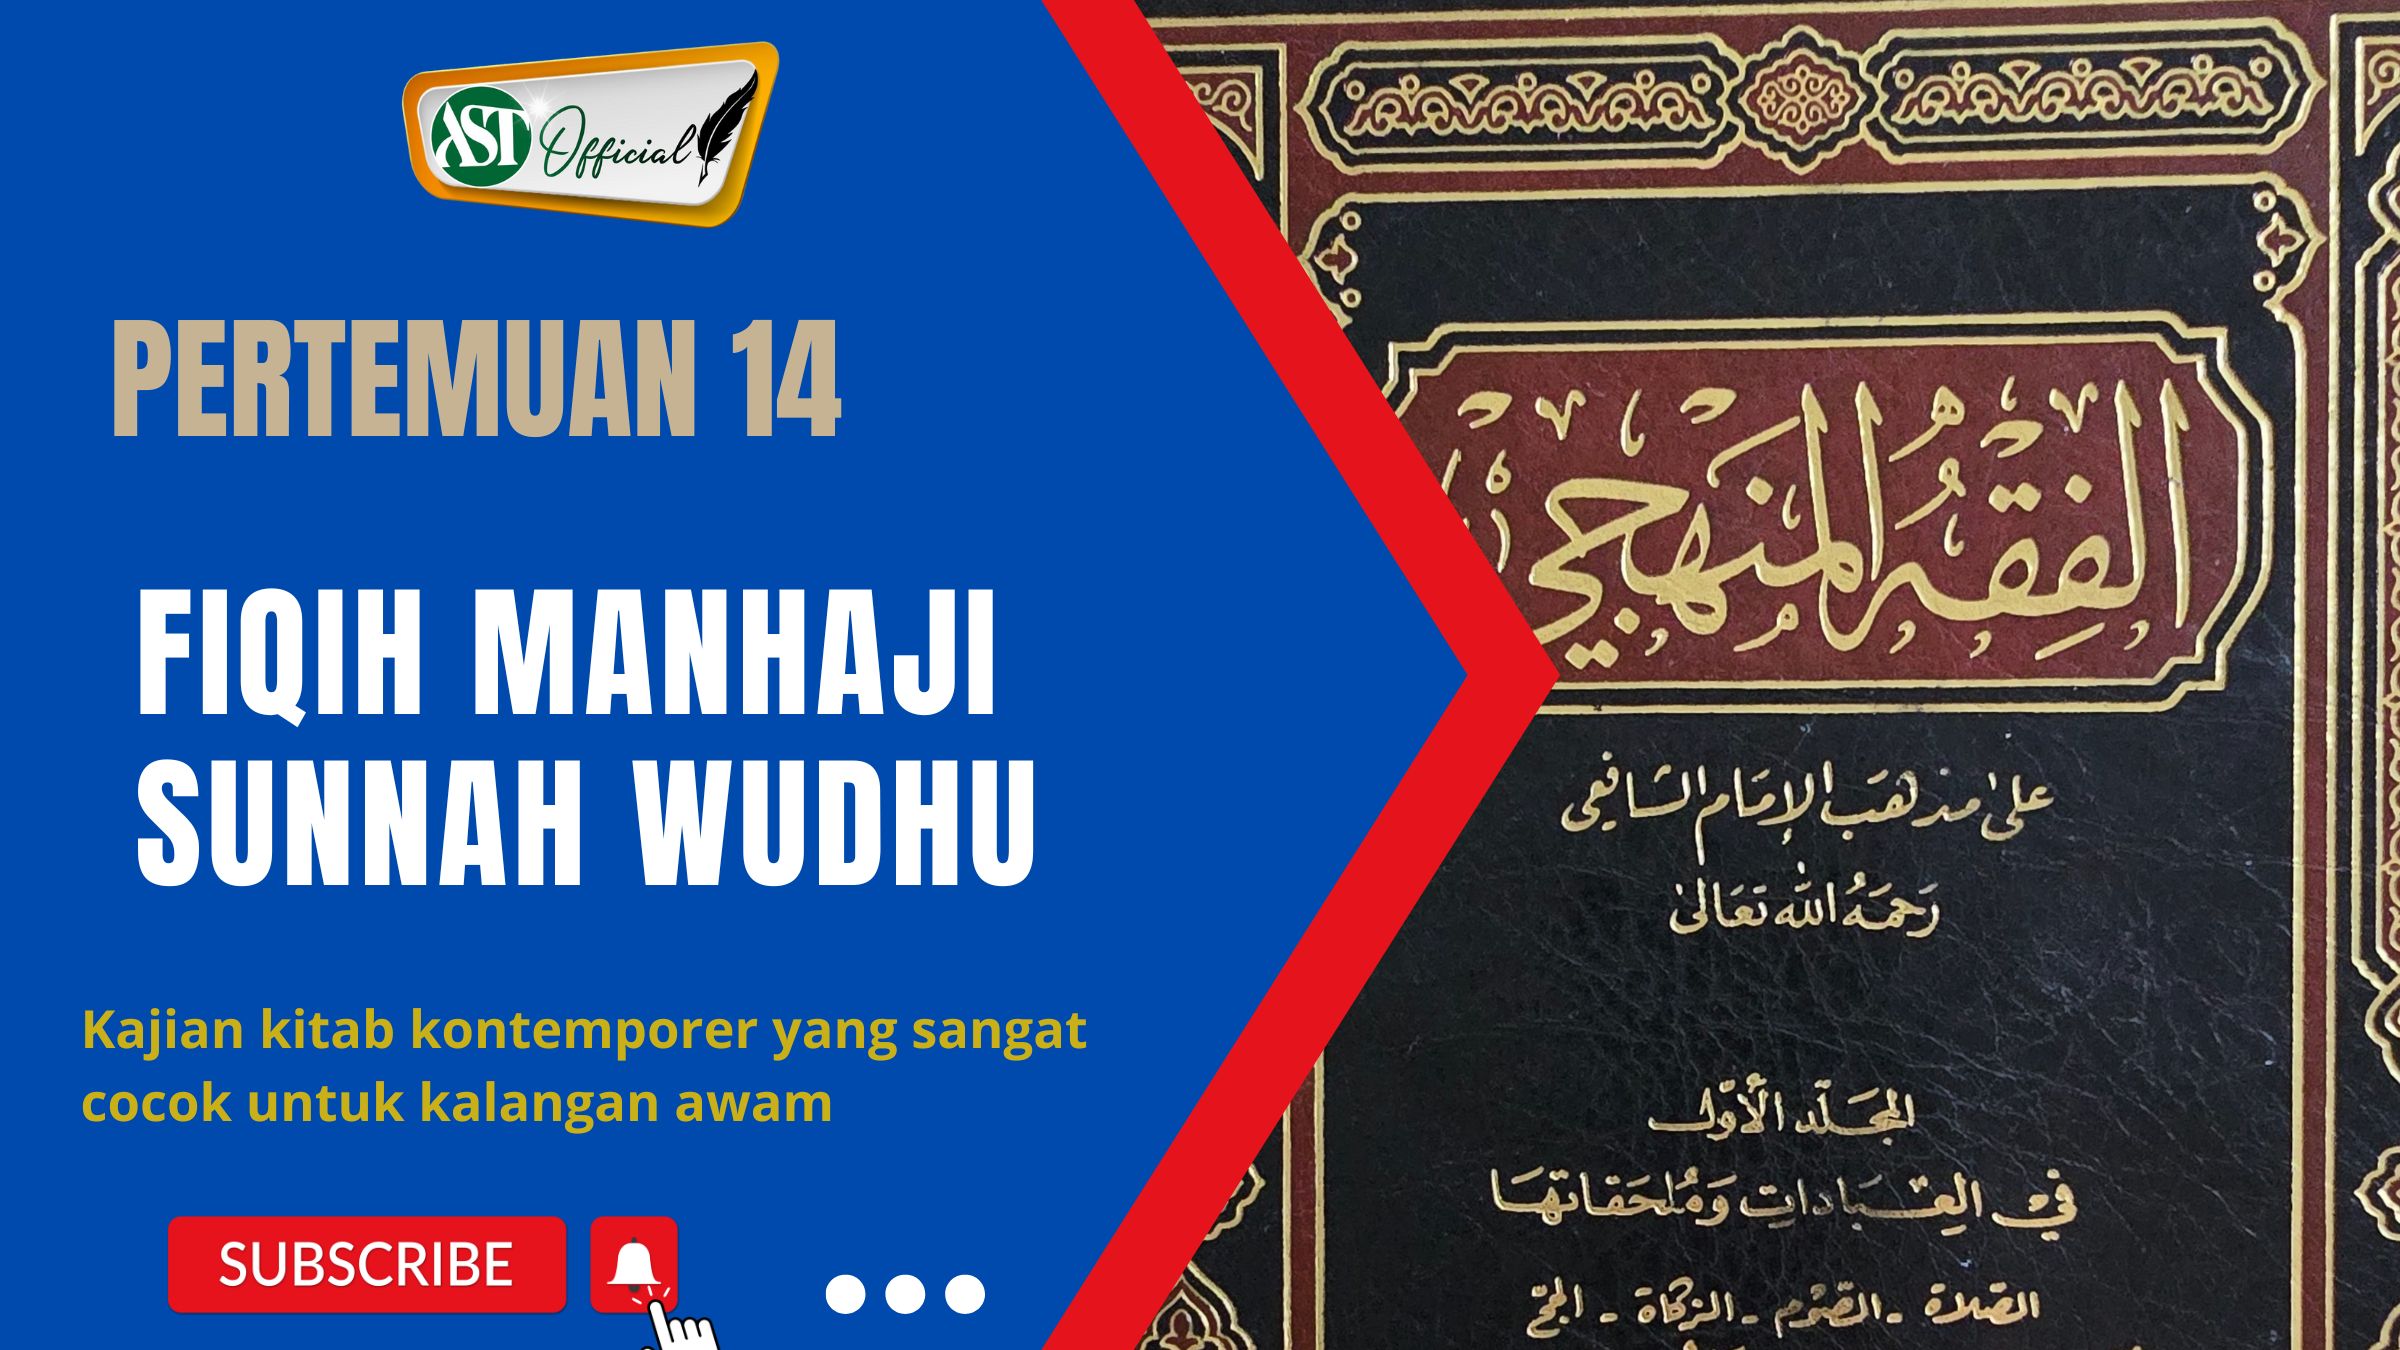 AST Official
PERTEMUAN 14
FIQIH MANHAJI
SUNNAH WUDHU
Kajian kitab kontemporer yang sangat
cocok untuk kalangan awam
SUBSCRIBE
الفِقْهُ المَنْهَجِي
على مذهَب الإمَام الشافِعي
رَحمَهُ الله تعَالى
المجَلّد الأوّل
في العِبَاداتِ وَمُلحَقاتهَا
الصّلاة - الصّوم - الزكاة - الحجّ